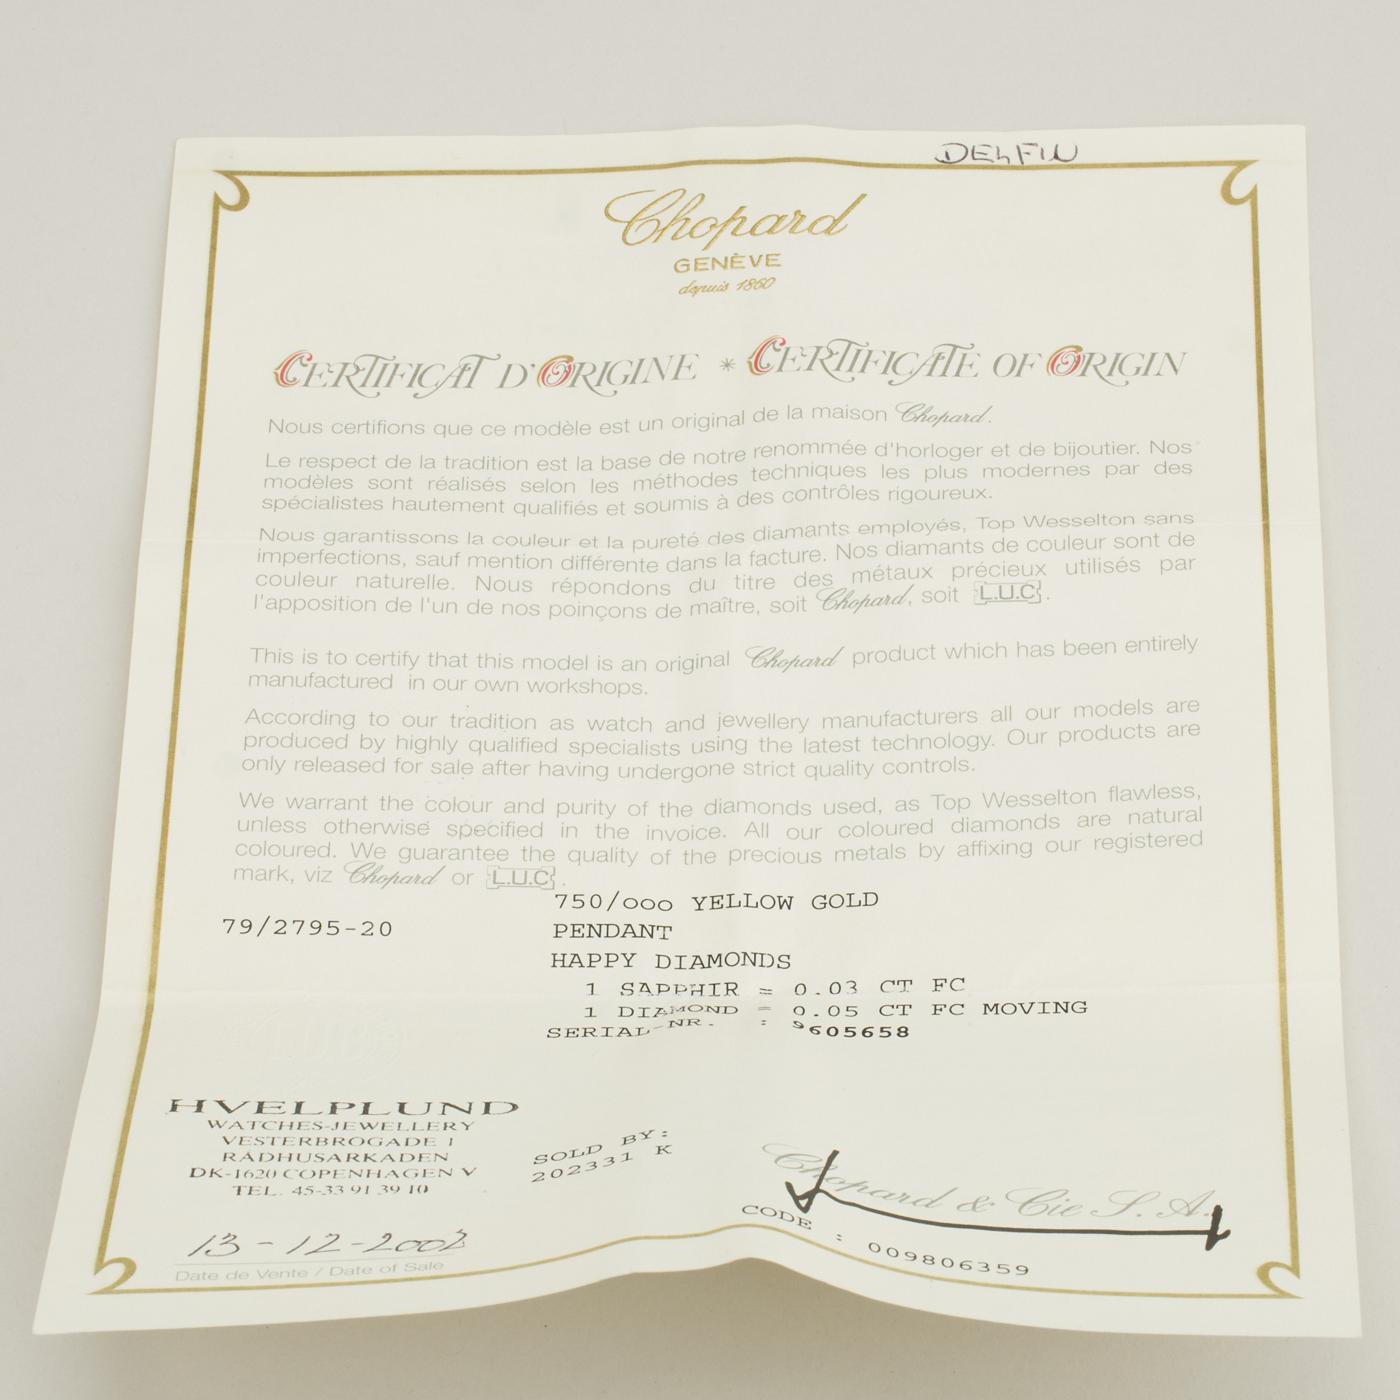 DELFIN
Chopard
GENÈVE
depuis 1860
CERTIFICAT D'ORIGINE * CERTIFICATE OF ORIGIN
Nous certifions que ce modèle est un original de la maison Chopard.
Le respect de la tradition est la base de notre renommée d'horloger et de bijoutier. Nos
modèles sont réalisés selon les méthodes techniques les plus modernes par des
spécialistes hautement qualifiés et soumis à des contrôles rigoureux.
Nous garantissons la couleur et la pureté des diamants employés, Top Wesselton sans
imperfections, sauf mention différente dans la facture. Nos diamants de couleur sont de
couleur naturelle. Nous répondons du titre des métaux précieux utilisés par
l'apposition de l'un de nos poinçons de maître, soit Chopard, soit L.U.C.
This is to certify that this model is an original Chopard product which has been entirely
manufactured in our own workshops.
According to our tradition as watch and jewellery manufacturers all our models are
produced by highly qualified specialists using the latest technology. Our products are
only released for sale after having undergone strict quality controls.
We warrant the colour and purity of the diamonds used, as Top Wesselton flawless,
unless otherwise specified in the invoice. All our coloured diamonds are natural
coloured. We guarantee the quality of the precious metals by affixing our registered
mark, viz Chopard or L.U.C.
750/ooo YELLOW GOLD
79/2795-20 PENDANT
HAPPY DIAMONDS
1 SAPPHIR = 0.03 CT FC
1 DIAMOND = 0.05 CT FC MOVING
SERIAL-NR. : 9605658
HVELPLUND
WATCHES-JEWELLERY
VESTERBROGADE 1
RÅDHUSARKADEN
DK-1620 COPENHAGEN V
TEL. 45-33 91 39 10
SOLD BY:
202331 K
Chopard & Cie S. A.
CODE : 009806359
13-12-2002
Date de Vente / Date of Sale